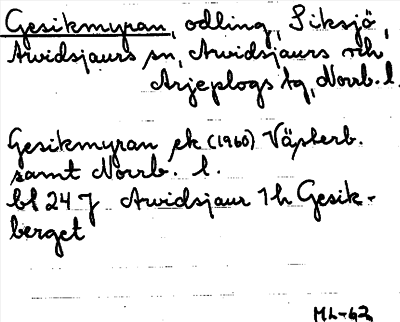 Gesikmyran, odling, Siksjö,
Arvidsjaurs sn, Arvidsjaurs och
Arjeplogs tg, Norrb. l.
Gesikmyran ek (1960) Västerb.
samt Norrb. l.
bl 24 J Arvidsjaur 1h Gesik-
berget